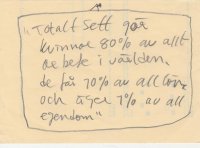 "Totalt sett gör
kvinnor 80% av allt
arbete i världen.
de får 10% av all lön
och äger 1% av all
egendom"